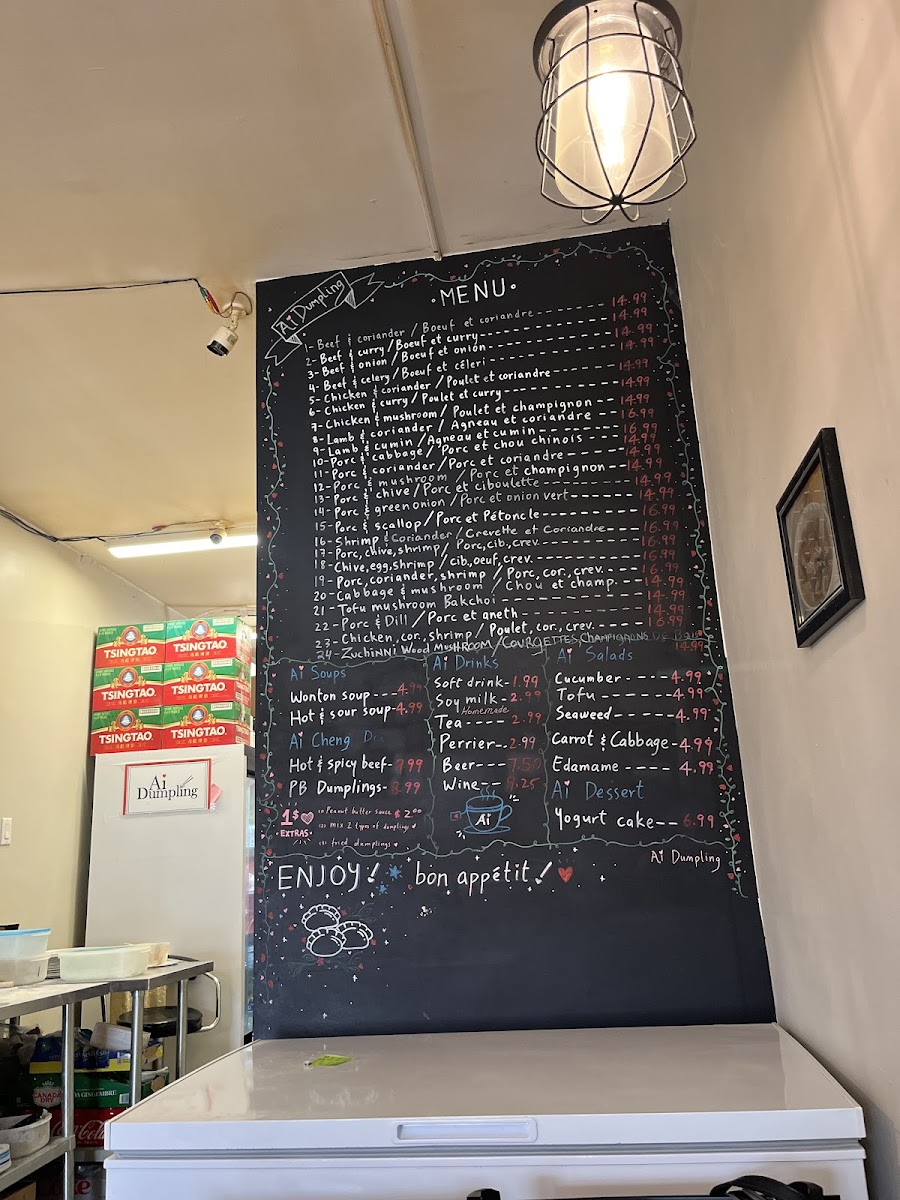 Ai Dumpling
·MENU·
1- Beef & coriander / Boeuf et coriandre 14.99
2- Beef & curry / Boeuf et curry 14.99
3- Beef & onion / Boeuf et onion 14.99
4- Beef & celery / Boeuf et céleri 14.99
5- Chicken & coriander / Poulet et coriandre 14.99
6- Chicken & curry / Poulet et curry 14.99
7- Chicken & mushroom / Poulet et champignon 14.99
8- Lamb & coriander / Agneau et coriandre 16.99
9- Lamb & cumin / Agneau et cumin 16.99
10- Porc & cabbage / Porc et chou chinois 14.99
11- Porc & coriander / Porc et coriandre 14.99
12- Porc & mushroom / Porc et champignon 14.99
13- Porc & chive / Porc et ciboulette 14.99
14- Porc & green onion / Porc et onion vert 14.99
15- Porc & scallop / Porc et Pétoncle 16.99
16- Shrimp & Coriander / Crevette et Coriandre 16.99
17- Porc, chive, shrimp / Porc, cib., crev. 16.99
18- Chive, egg, shrimp / cib., oeuf, crev. 16.99
19- Porc, coriander, shrimp / Porc, cor., crev. 16.99
20- Cabbage & mushroom / Chou et champ. 14.99
21- Tofu mushroom Bakchoi 14.99
22- Porc & Dill / Porc et aneth 14.99
23- Chicken, cor., shrimp / Poulet, cor., crev. 16.99
24- Zuchinni Wood Mushroom / Courgettes Champignons de Bois 14.99
Ai Soups
Wonton soup 4.99
Hot & sour soup 4.99
Ai Cheng
Hot & spicy beef 9.99
PB Dumplings 8.99
1$ EXTRAS
(1) Peanut butter sauce $2.00
(2) mix 2 types of dumplings
(3) fried dumplings
Ai Drinks
Soft drink 1.99
Soy milk 2.99
Homemade
Tea 2.99
Perrier 2.99
Beer 7.50
Wine 9.25
Ai
Ai Salads
Cucumber 4.99
Tofu 4.99
Seaweed 4.99
Carrot & Cabbage 4.99
Edamame 4.99
Ai Dessert
Yogurt cake 6.99
Ai Dumpling
ENJOY! bon appétit!
TSINGTAO
TSINGTAO
TSINGTAO
TSINGTAO
TSINGTAO
TSINGTAO
Ai
Dumpling
CANADA
DRY
GINGEMBRE
Coca